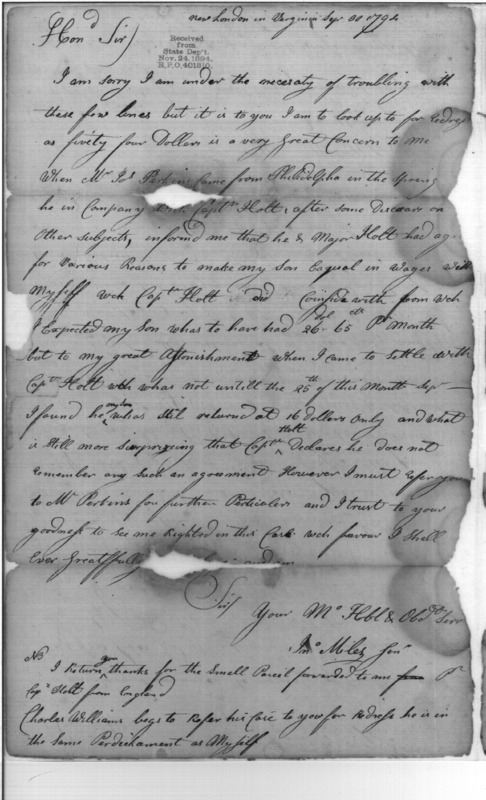 New London in Virginia Sepr 30 1794
Received
from
State Dep't.
Nov. 24. 1894.
R.P.O. 401810.
Hond Sir)
I am sorry I am under the necessaty of troubling with
these few lines but it is to you I am to look up to for Redress
as fivety four Dollars is a very Great Concern to me
When Mr Jos Perkins Came from Philidelpha in the Spring
he in Company with Captn Holt, after some Discours on
Other subjects, informd me that he & Major Holt had ag
for Various Reasons to make my Son Eaqual in Wages with
Myself wch Captn Holt did Coinside with from Wch
I Expected my Son whas to have had 26 Dol 65 cts Pr Month
but to my great Astonishment when I came to Settle with
Captn Holt wch whas not untill the 25th of this Month Sepr
I found he my Son whas still returnd at 16 dollers Only and what
is still more surprizeing that Captn Holt Declares he does not
Remember any such an agreement However I must Refer you
to Mr Perkins for further Particulers and I trust to your
goodness to See me Righted in this Case wch favour I Shall
Ever Greatfully
Sir)
Your Mo Hbl & Obdt Servt
Jno Miles Senr
NB
I Return you thanks for the Small Parcil forwarded to me from Pr
Capn Holt from England
Charles Williams begs to Refer his Case to you for Redress he is in
the Same Perdichament as Myself